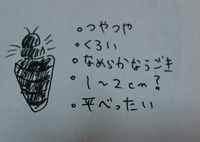 。つやつや
。くろい
。なめらかなうごき
。1〜2cm?
。平べったい